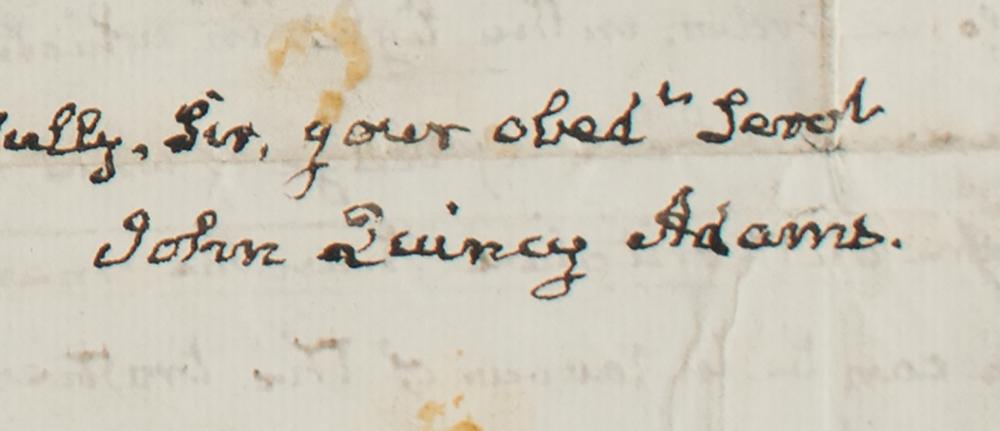 ully, Sir, your obed^t Serv^t
John Quincy Adams.